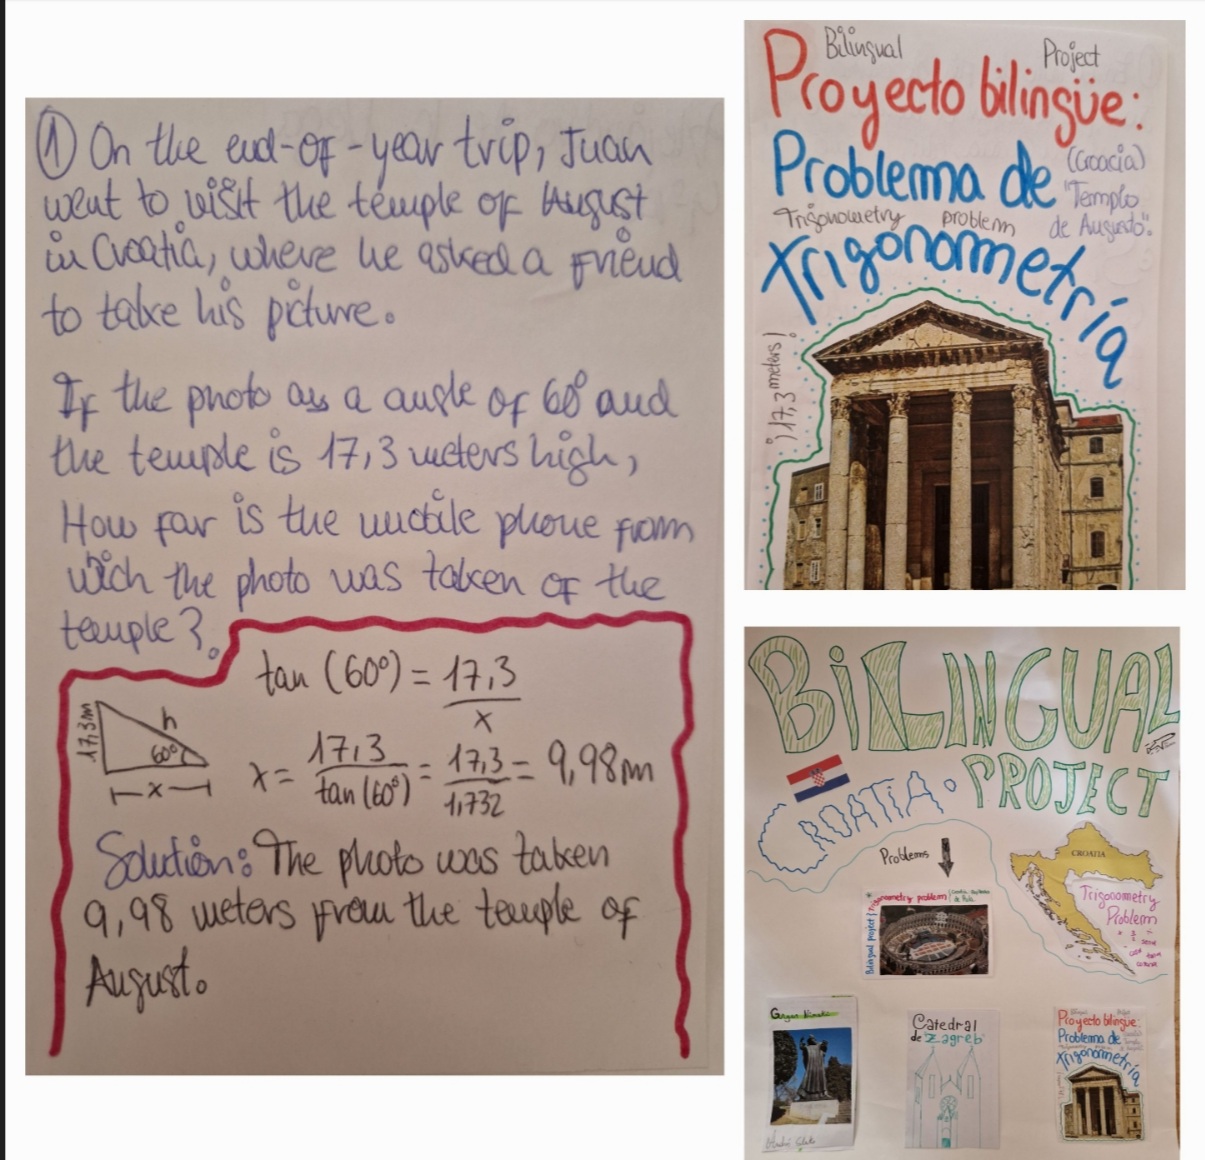 ① On the end-of-year trip, Juan
went to visit the temple of August
in Croatia, where he asked a friend
to take his picture.
If the photo as a angle of 60º and
the temple is 17,3 meters high,
How far is the mobile phone from
wich the photo was taken of the
temple?.
tan (60º) = 17,3 / x
17,3m
h
60º
x
x = 17,3 / tan(60º) = 17,3 / 1,732 = 9,98m
Solution: The photo was taken
9,98 meters from the temple of
August.
Bilingual Project
Proyecto bilingüe:
Problema de
(Croacia)
"Templo
de Augusto".
Trigonometry problem
Trigonometría
¡17,3 meters!
BiLINGUAL
PROJECT
CROATiA.
Problems
CROATIA
Trigonometry
Problem
Trigonometry problem
Bilingual project
Catedral
de Zagreb
Proyecto bilingüe:
Problema de
Trigonometría